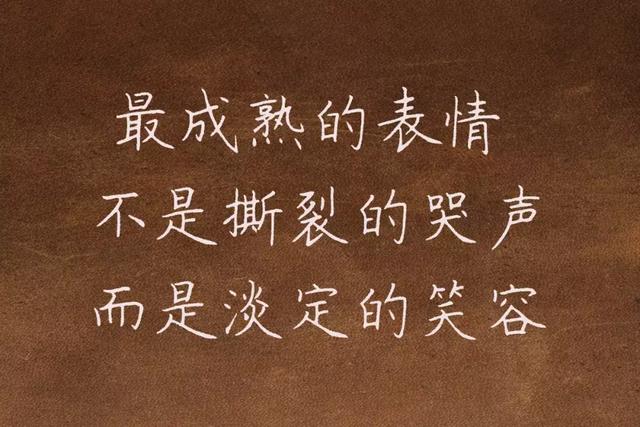 最成熟的表情
不是撕裂的哭声
而是淡定的笑容